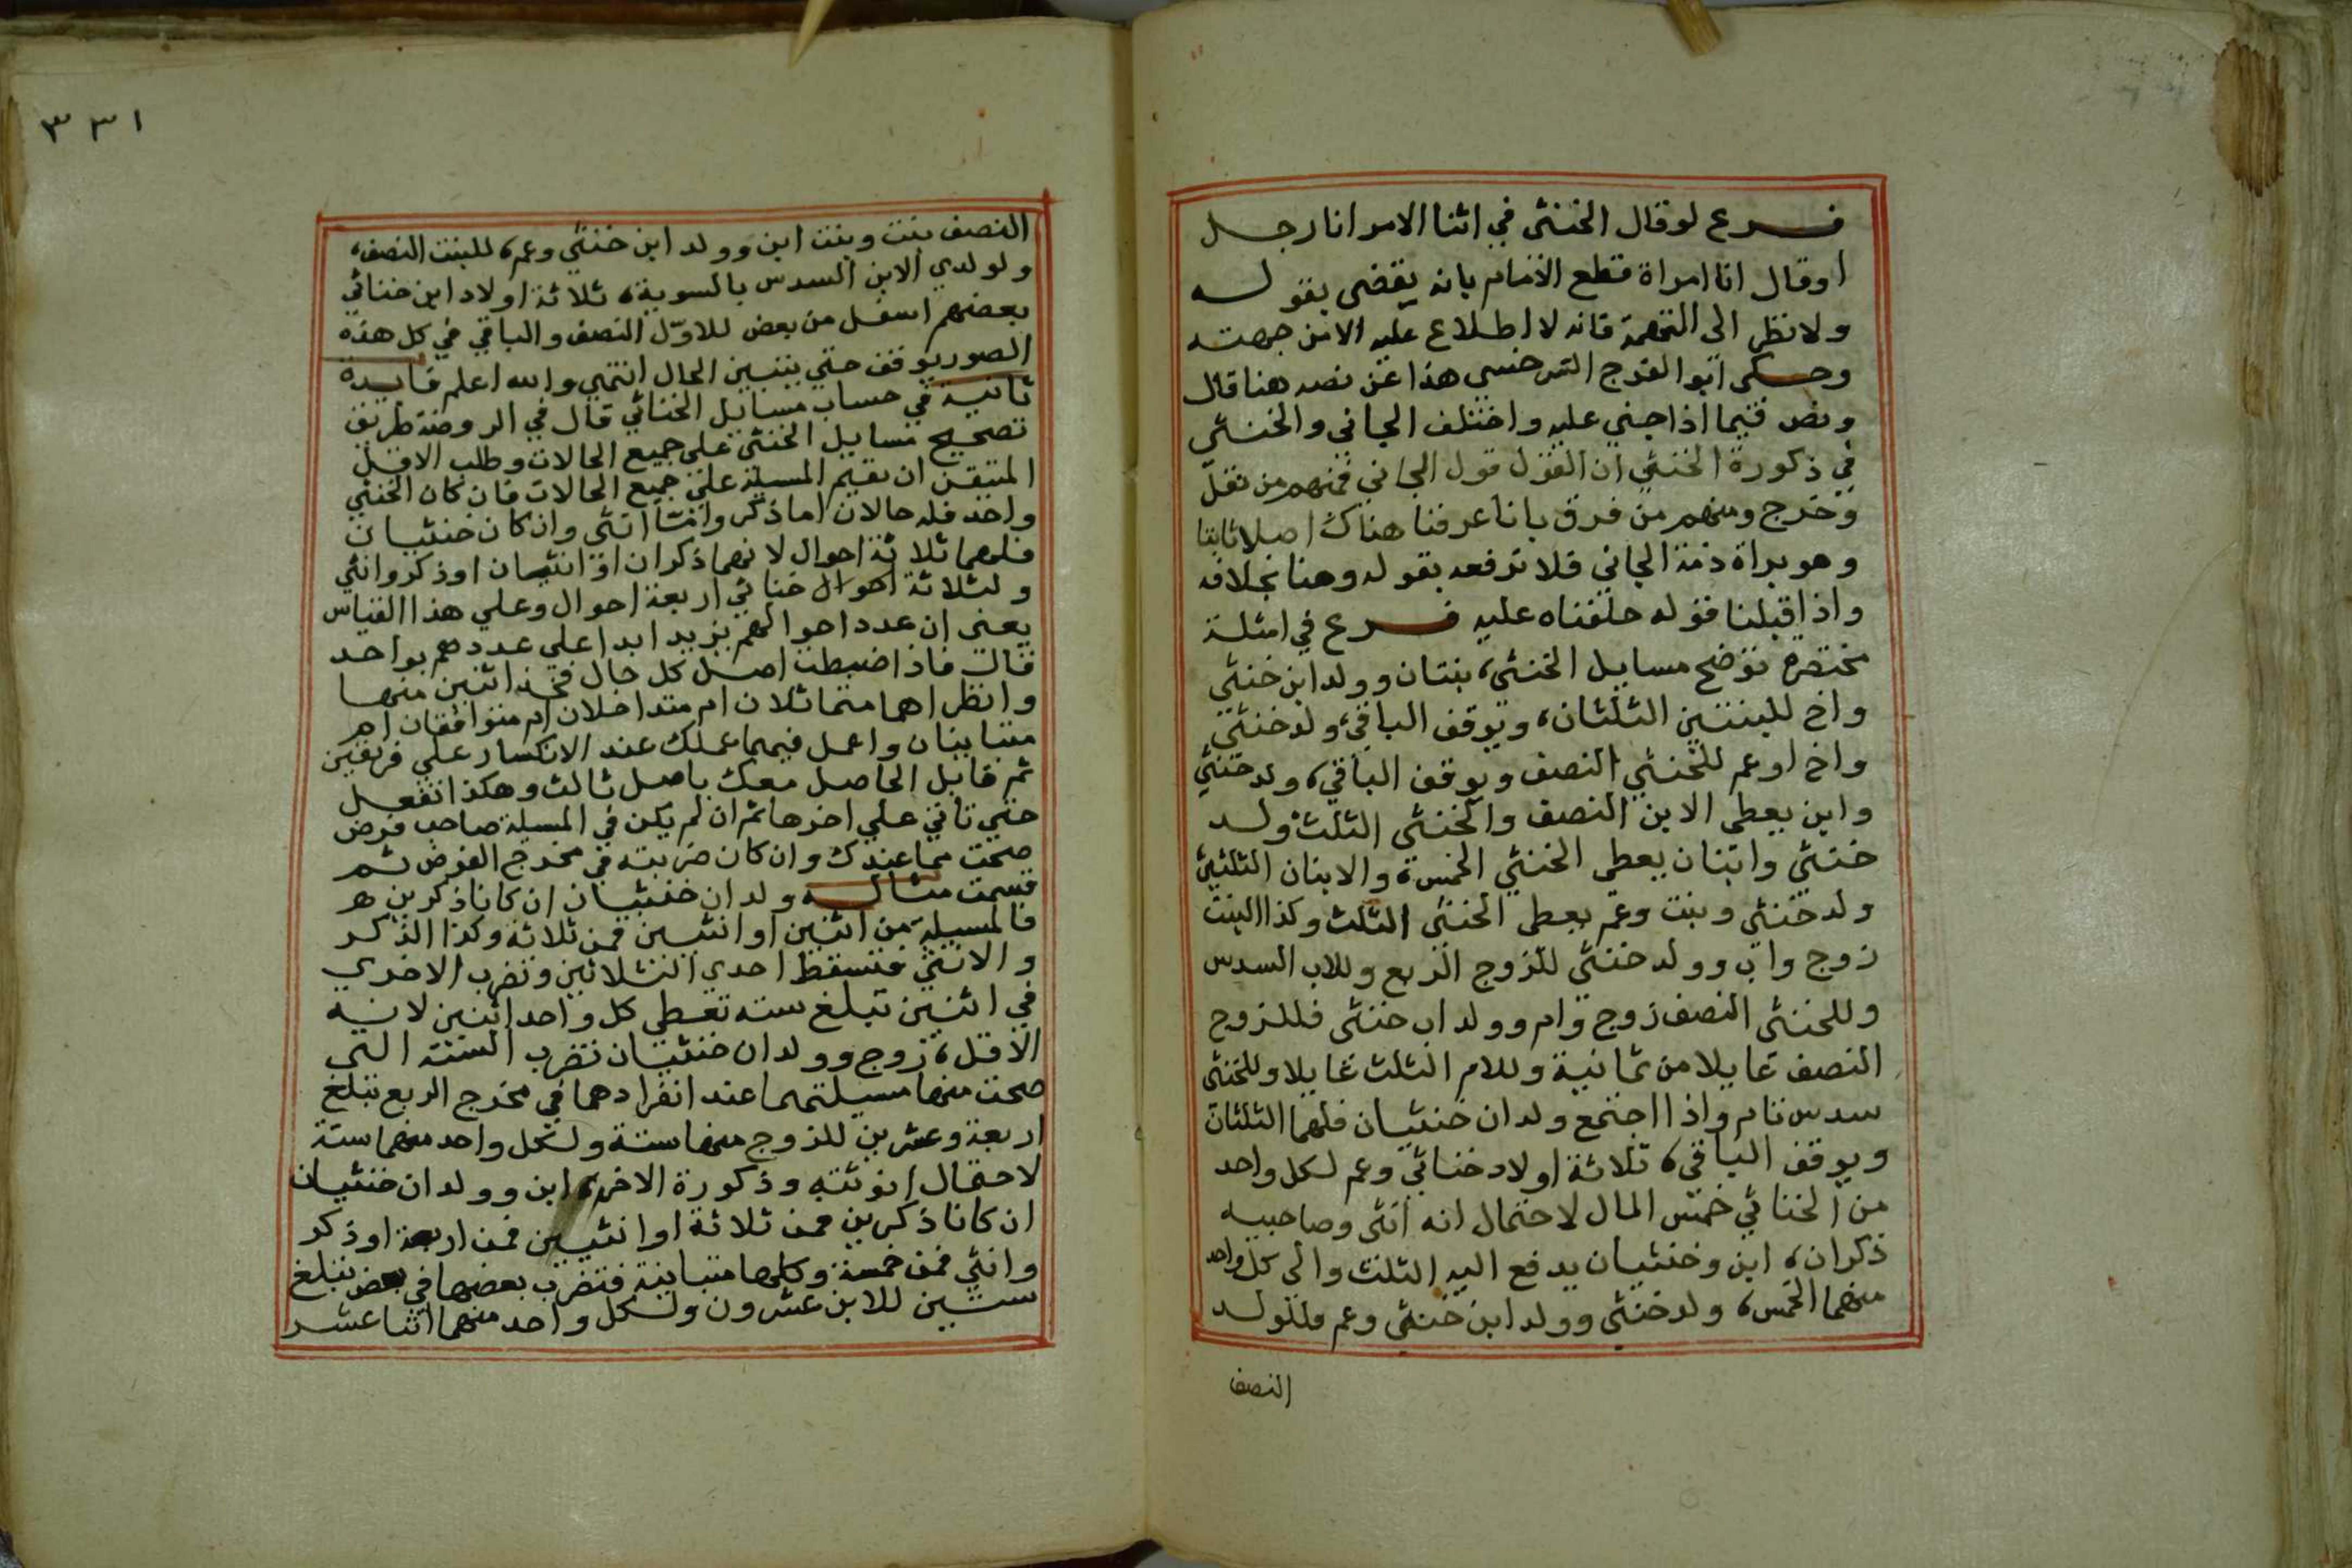 فرع لو قال الخنثى في اثنا الامر انا رجل
او قال انا امراة قطع الامام بانه يقضى بقوله
ولا نظر الى التهمة فانه لا اطلاع عليه الا من جهته
وحكى ابو الفرج السرخسي هذا عن نصه هنا قال
ونص فيما اذا جني عليه واختلف الجاني والخنثي
في ذكورة الخنثي ان القول قول الجاني فمنهم من نقل
وخرج ومنهم من فرق بانا عرفنا هناك اصلا ثابتا
وهو براة ذمة الجاني فلا نرفعه بقوله وهنا بخلافه
واذا قبلنا قوله حلفناه عليه فرع في امثلة
مختصرة توضح مسايل الخنثى، بنتان وولد ابن خنثي
واخ للبنتين الثلثان، ويوقف الباقي، ولد خنثي
واخ او عم للخنثي النصف ويوقف الباقي، ولد خنثي
وابن يعطى الابن النصف والخنثى الثلث، ولد
خنثي وابنان يعطى الخنثي الخمس، والابنان الثلثين
ولد خنثي وبنت وعم يعطى الخنثى الثلث وكذا البنت
زوج واب وولد خنثى للزوج الربع وللاب السدس
وللخنثى النصف زوج وام وولد اب خنثى فللزوج
النصف عايلا من ثمانية وللام الثلث عايلا وللخنثى
سدس تام واذا اجتمع ولدان خنثيان فلهما الثلثان
ويوقف الباقي، ثلاثة اولاد خناثي وعم لكل واحد
من الخناثي خمس المال لاحتمال انه انثى وصاحبيه
ذكران، ابن وخنثيان يدفع اليه الثلث والى كل واحد
منهما الخمس، ولد خنثي وولد ابن خنثي وعم فللولد
النصف
٣٣١
النصف بنت وبنت ابن وولد ابن خنثي وعم، للبنت النصف،
ولولدي الابن السدس بالسوية، ثلاثة اولاد ابن خناثي
بعضهم اسفل من بعض للاول النصف والباقي في كل هذه
الصور يوقف حتي يتبين الحال انتهي والله اعلم فايدة
ثانية في حساب مسايل الخناثي قال في الروضة طريق
تصحيح مسايل الخنثى على جميع الحالات وطلب الاقل
المتيقن ان تقيم المسيلة على جميع الحالات فان كان الخنثي
واحد فله حالان اما ذكر وامثا انثى وان كان خنثيان
فلهما ثلاثة احوال لانهما ذكران او انثيان او ذكر وانثي
ولثلاثة احوال خناثي اربعة احوال وعلي هذا القياس
يعني ان عدد احوالهم يزيد ابدا على عددهم بواحد
قال فاذا ضبطت اصل كل حال فخذ اثنين منها
وانظر اهما متماثلان ام متداخلان ام متوافقان ام
متباينان واعمل فيهما عملك عند الانكسار علي فريقين
ثم قابل الحاصل معك باصل ثالث وهكذا تفعل
حتي تاتي علي اخرها ثم ان لم يكن في المسيلة صاحب فرض
صحت مما عندك وان كان ضربته في مخرج الفرض ثم
قسمت مثاله ولدان خنثيان ان كانا ذكرين هر
فالمسيلة من اثنين او انثيين فمن ثلاثة وكذا الذكر
والانثي فتسقط احدي الثلاثين وتضرب الاخري
في اثنين تبلغ ستة تعطى كل واحد اثنين لانه
الاقل، زوج وولدان خنثيان تضرب الستة التي
صحت منها مسيلتهما عند انفرادهما في مخرج الربع تبلغ
اربعة وعشرين للزوج منها ستة ولكل واحد منهما ستة
لاحتمال انوثته وذكورة الاخر، ابن وولدان خنثيان
ان كانا ذكرين فمن ثلاثة او انثيين فمن اربعة او ذكر
وانثي فمن خمسة وكلها متباينة فتضرب بعضها في بعض تبلغ
ستين للابن عشرون ولكل واحد منهما اثنا عشر